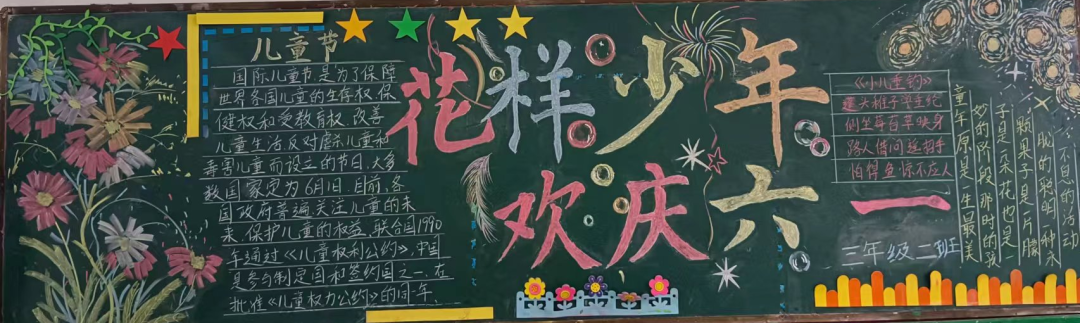 儿童节
国际儿童节是为了保障
世界各国儿童的生存权、保
健权和受教育权、改善
儿童生活及对虐杀儿童和
毒害儿童而设立的节日、大多
数国家定为6月1日、目前、各
国政府普遍关注儿童的未
来、保护儿童的权益、联合国1990
年通过《儿童权利公约》、中国
是参与制定国和签约国之一、在
批准《儿童权力公约》的同年、
花样少年
欢庆六一
《小儿垂钓》
蓬头稚子学垂纶
侧坐莓苔草映身
路人借问遥招手
怕得鱼惊不应人
童年原是一生最美
妙的阶段、那时的孩
子是一朵花也是一
颗果子是一片朦
胧的聪明一种永
不息的活动
三年级 二班